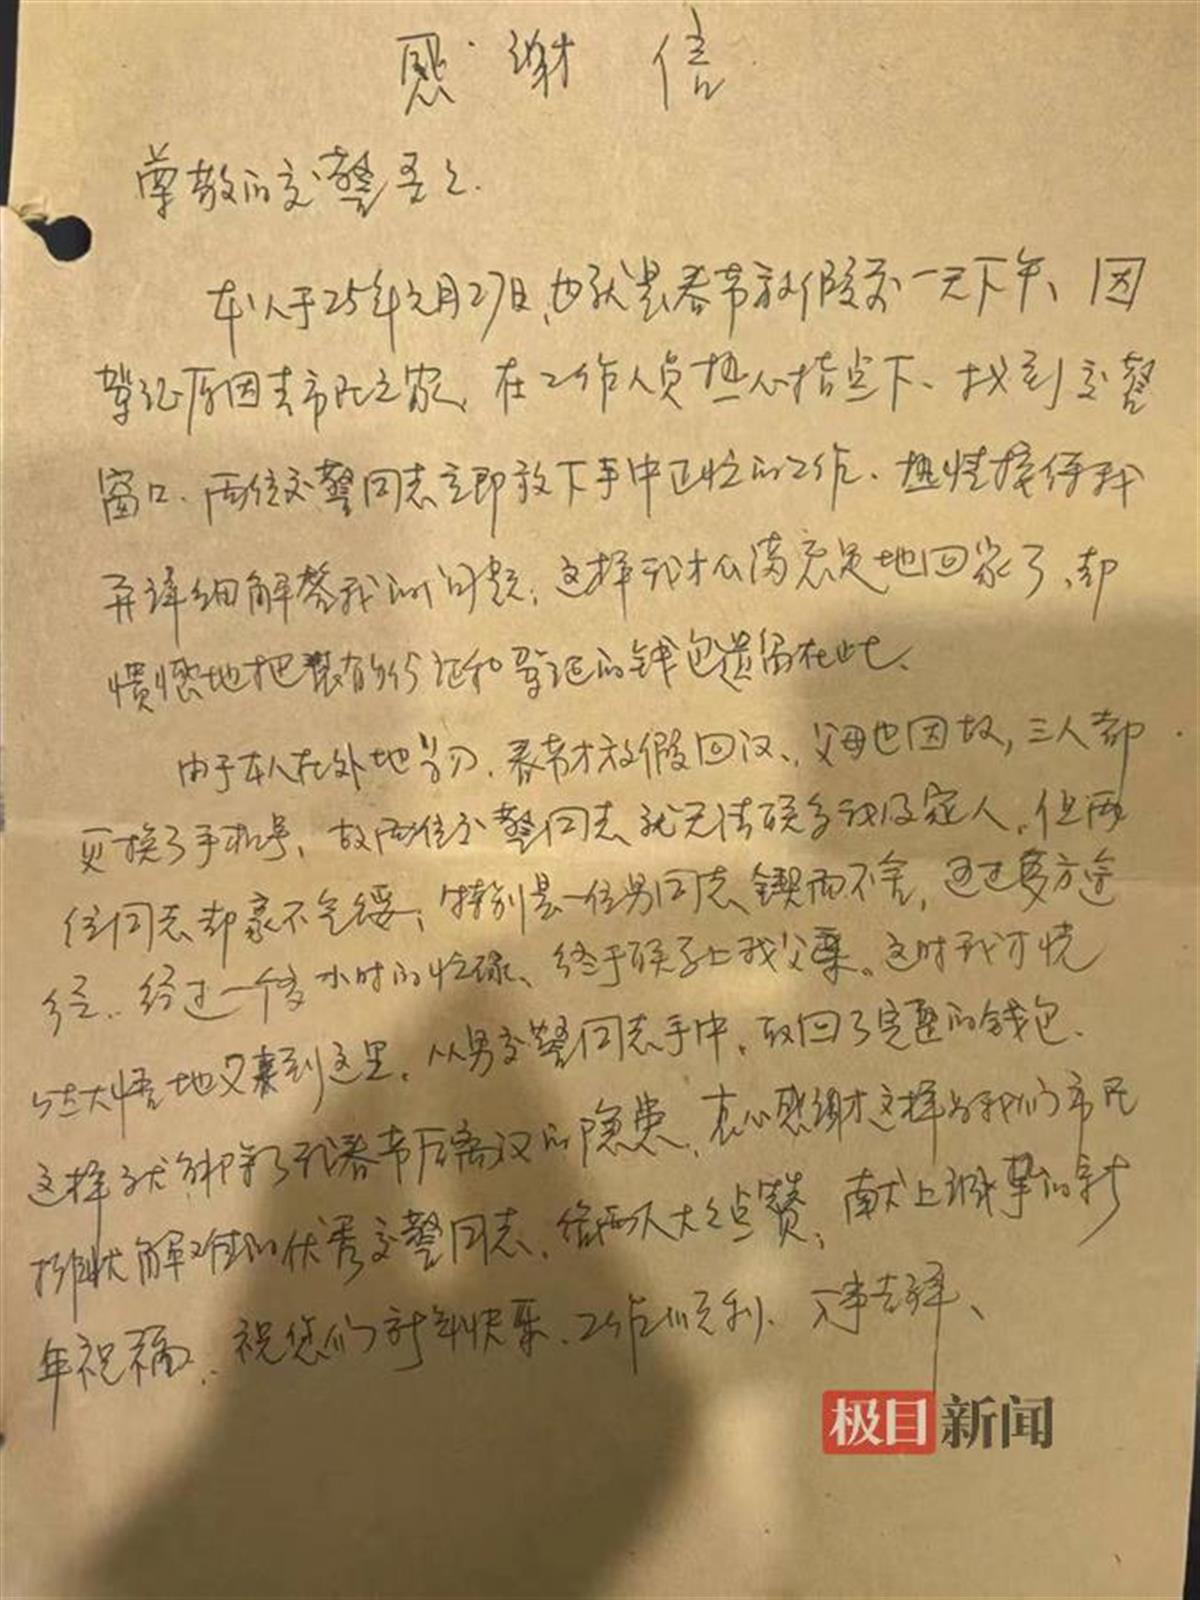 感谢信
尊敬的交警
本人于25年元月27日,也就是春节放假前一天下午、因
驾证原因去市民之家,在工作人员热心指点下、找到交警
窗口、两位交警同志立即放下手中正忙的工作、热情接待我
并详细解答我的问题,这样我才心满意足地回家了、却
慣懷地把装有身份证和驾证的钱包遗留在此、
由于本人在外地学习、春节才放假回汉、父母也因故,三人都
更换了手机号,故两位交警同志就无法联系我及家人。但两
位同志却豪不气馁,特别是一位男同志锲而不舍,通过多方途
径、经过一个多小时的忙碌、终于联系上我父亲。这时我才恍
然大悟地又来到这里,从男交警同志手中,取回了完整的钱包、
这样就解除了我春节后离汉的隐患,衷心感谢这样为我们市民
排忧解难的优秀交警同志,给两人大大点赞,献上诚挚的新
年祝福、祝您们新年快乐、工作顺利、万事吉祥、
极目新闻